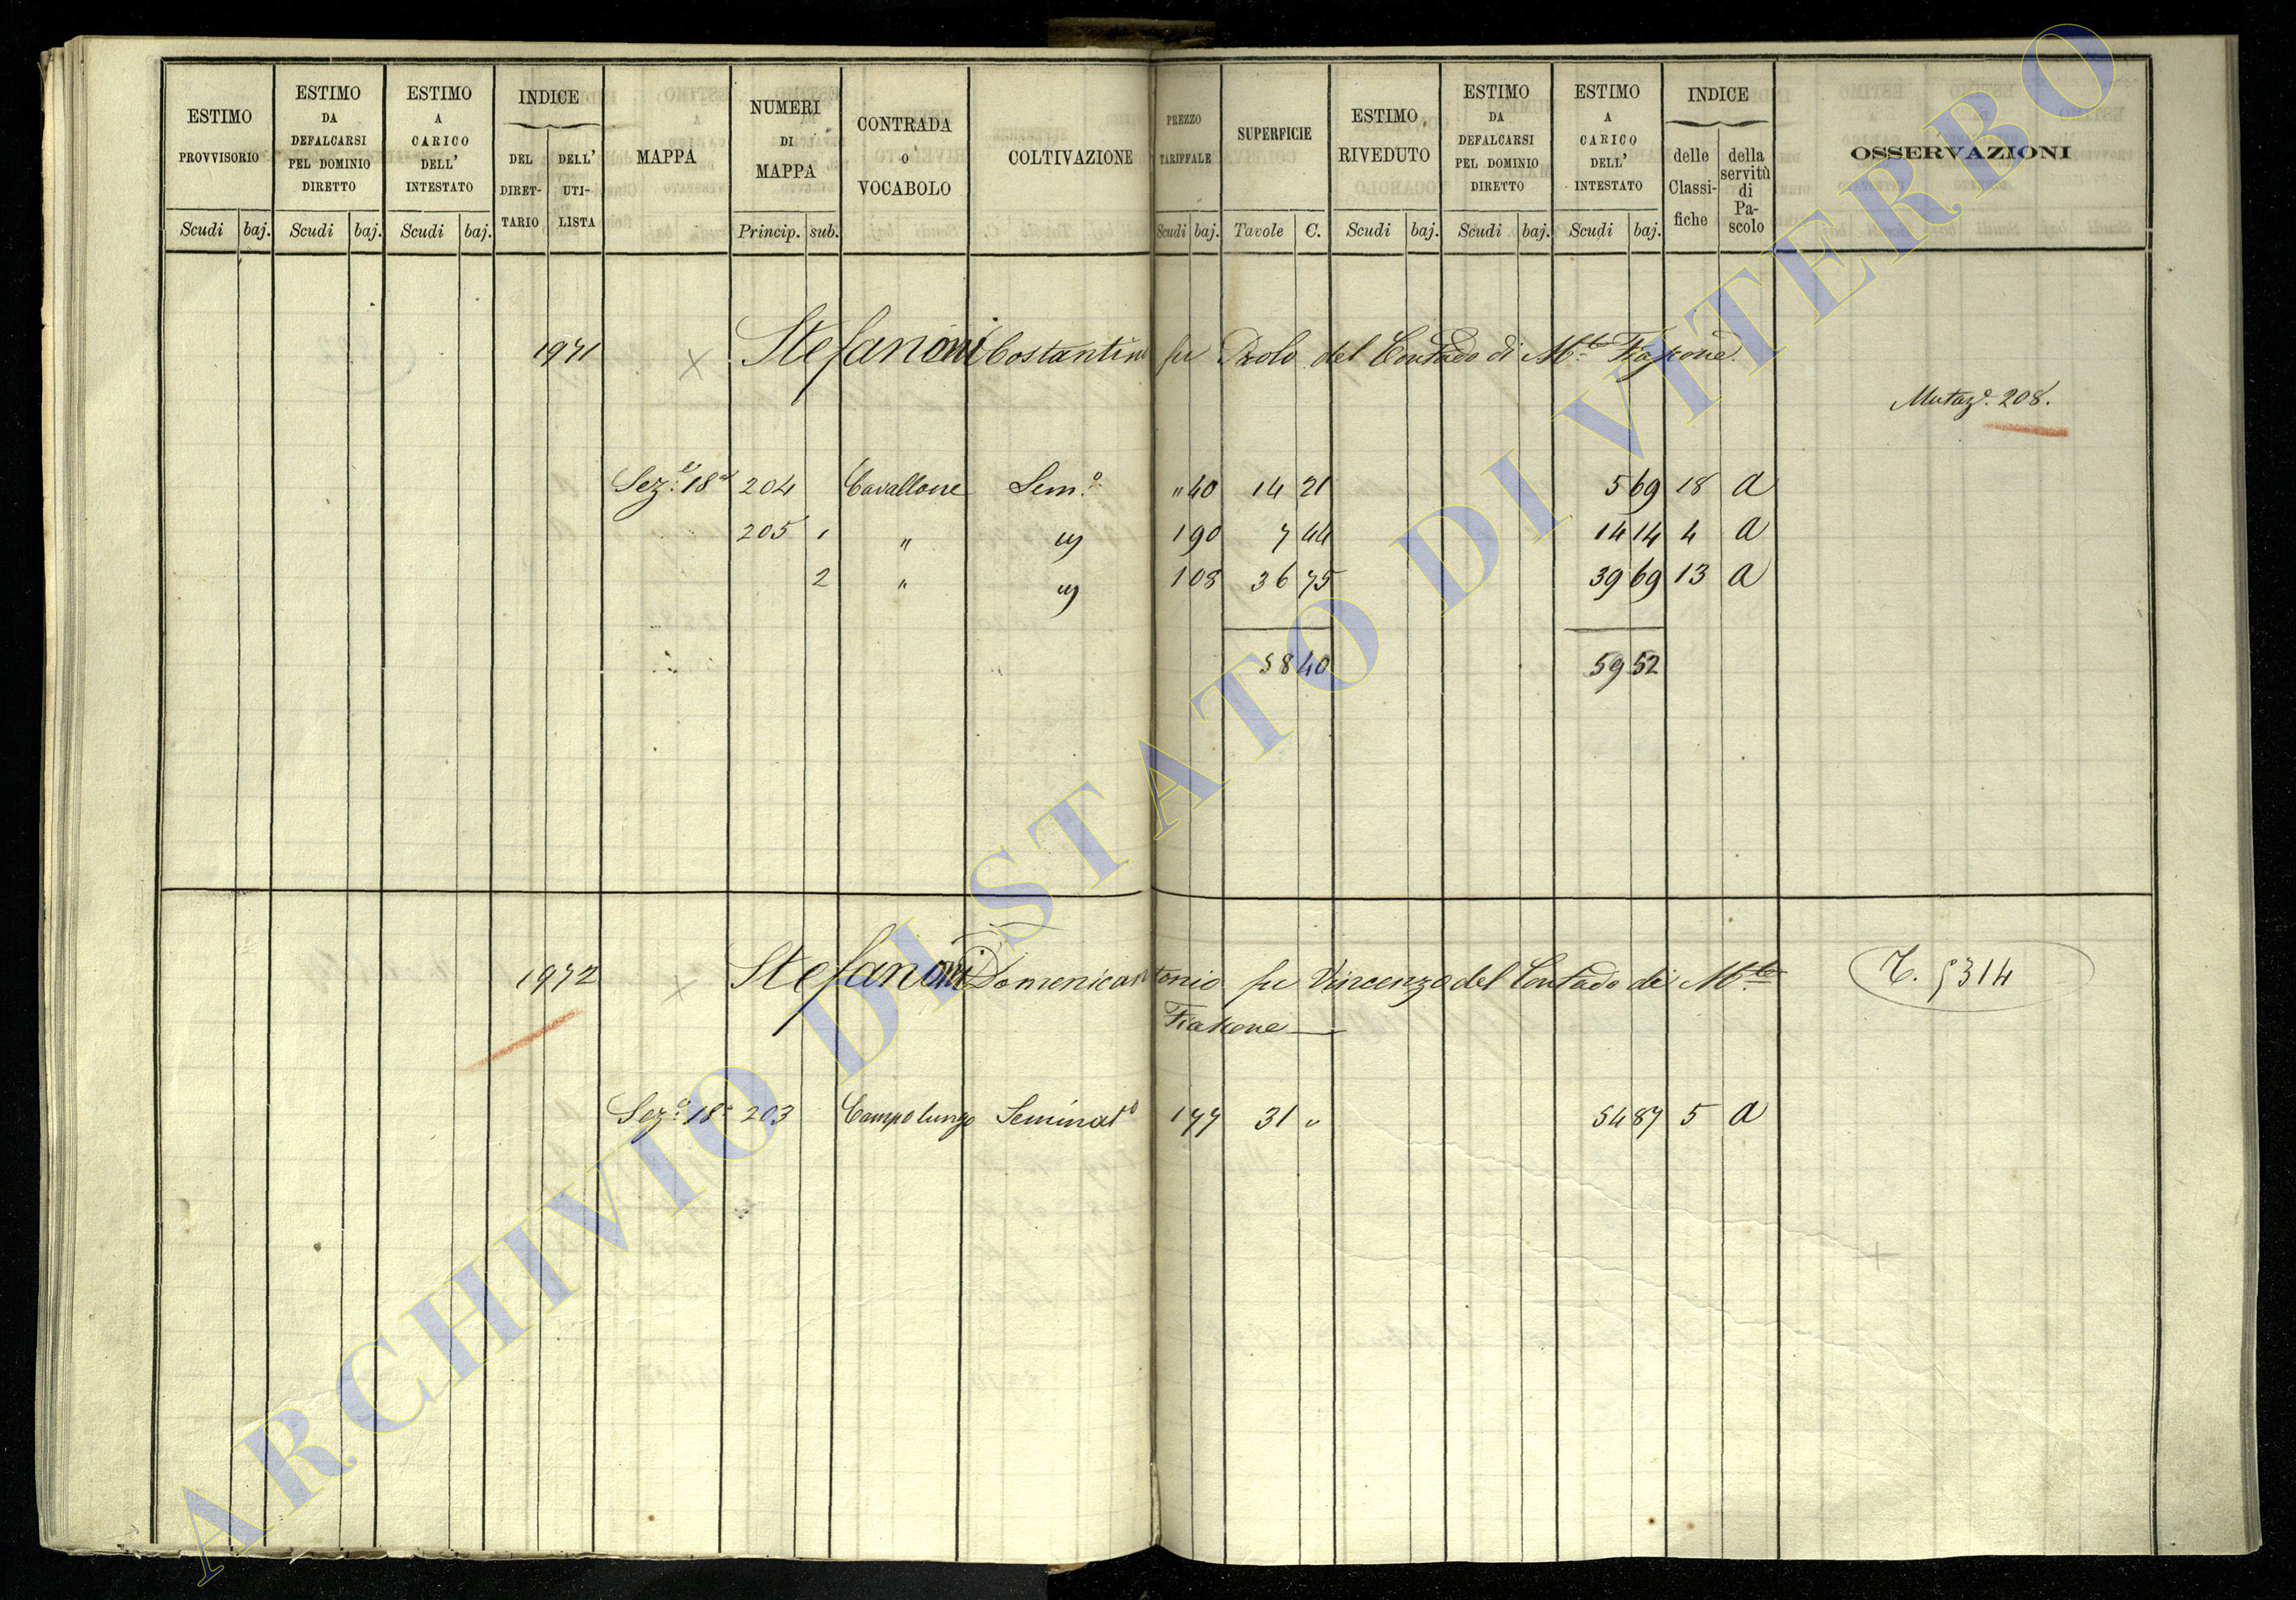 ESTIMO PROVVISORIO Scudi baj.
ESTIMO DA DEFALCARSI PEL DOMINIO DIRETTO Scudi baj.
ESTIMO A CARICO DELL' INTESTATO Scudi baj.
INDICE DEL DIRET-TARIO DELL' UTI-LISTA
MAPPA
NUMERI DI MAPPA Princip. sub.
CONTRADA O VOCABOLO
COLTIVAZIONE
PREZZO TARIFFALE Scudi baj.
SUPERFICIE Tavole C.
ESTIMO RIVEDUTO Scudi baj.
ESTIMO DA DEFALCARSI PEL DOMINIO DIRETTO Scudi baj.
ESTIMO A CARICO DELL' INTESTATO Scudi baj.
INDICE delle Classi-fiche della servitù di Pa-scolo
OSSERVAZIONI
1971 Stefanoni Costantino fu Paolo del Contado di M.te Fiascone
Mutaz.e 208.
Sez.e 18a 204 Cavallone Sem.o " 40 14 21 5 69 18 a
205 1 " " 1 90 7 44 14 14 4 a
2 " " 1 08 36 75 39 69 13 a
58 40 59 52
1972 Stefanoni Domenicantonio fu Vincenzo del Contado di M.te
Fiascone
T. 5314
Sez.e 18a 203 Campo lungo Seminato 1 77 31 " 54 87 5 a
ARCHIVIO DI STATO DI VITERBO